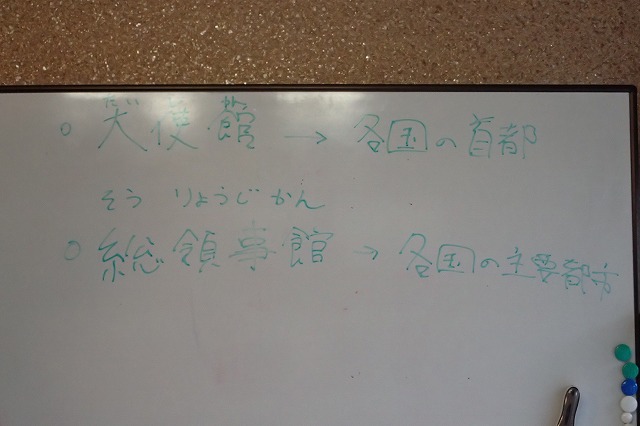 ○ 大使館 → 各国の首都
そうりょうじかん
○ 総領事館 → 各国の主要都市